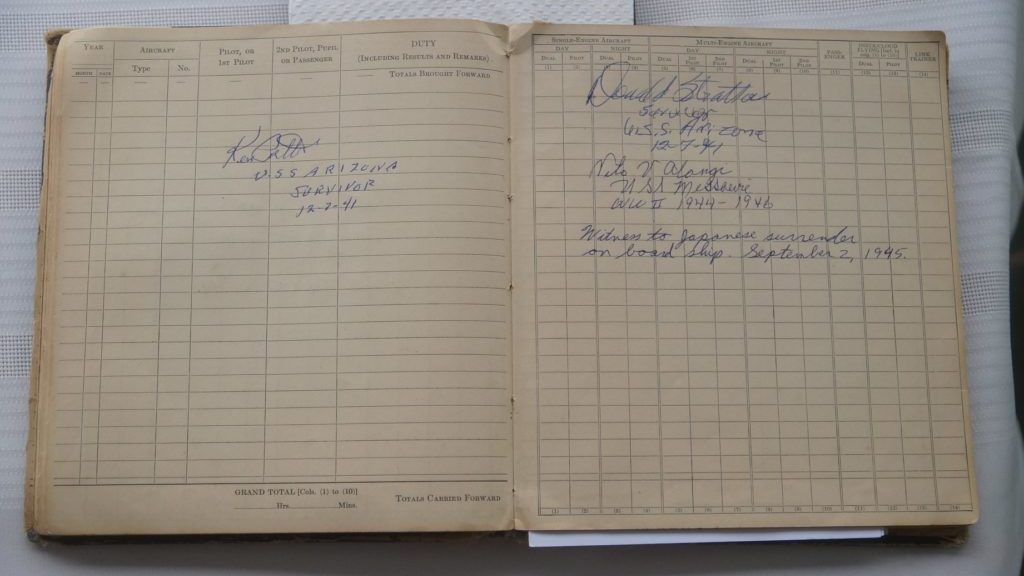 YEAR
AIRCRAFT
PILOT, OR
1ST PILOT
2ND PILOT, PUPIL
OR PASSENGER
DUTY
(INCLUDING RESULTS AND REMARKS)
MONTH DATE
Type No.
TOTALS BROUGHT FORWARD
Ken
U.S.S ARIZONA
SURVIVOR
12-7-41
GRAND TOTAL [Cols. (1) to (10)]
Hrs. Mins.
TOTALS CARRIED FORWARD
SINGLE-ENGINE AIRCRAFT
MULTI-ENGINE AIRCRAFT
DAY NIGHT DAY NIGHT
PASSENGER
LINK
TRAINER
DUAL PILOT DUAL PILOT DUAL 1ST PILOT 2ND PILOT DUAL 1ST PILOT 2ND PILOT DUAL PILOT
Donald Stratton
Survivor
U.S.S. Arizona
12-7-41
Vito V Alongi
USS Missouri
WW II 1944-1946
Witness to Japanese surrender
on board ship. September 2, 1945.